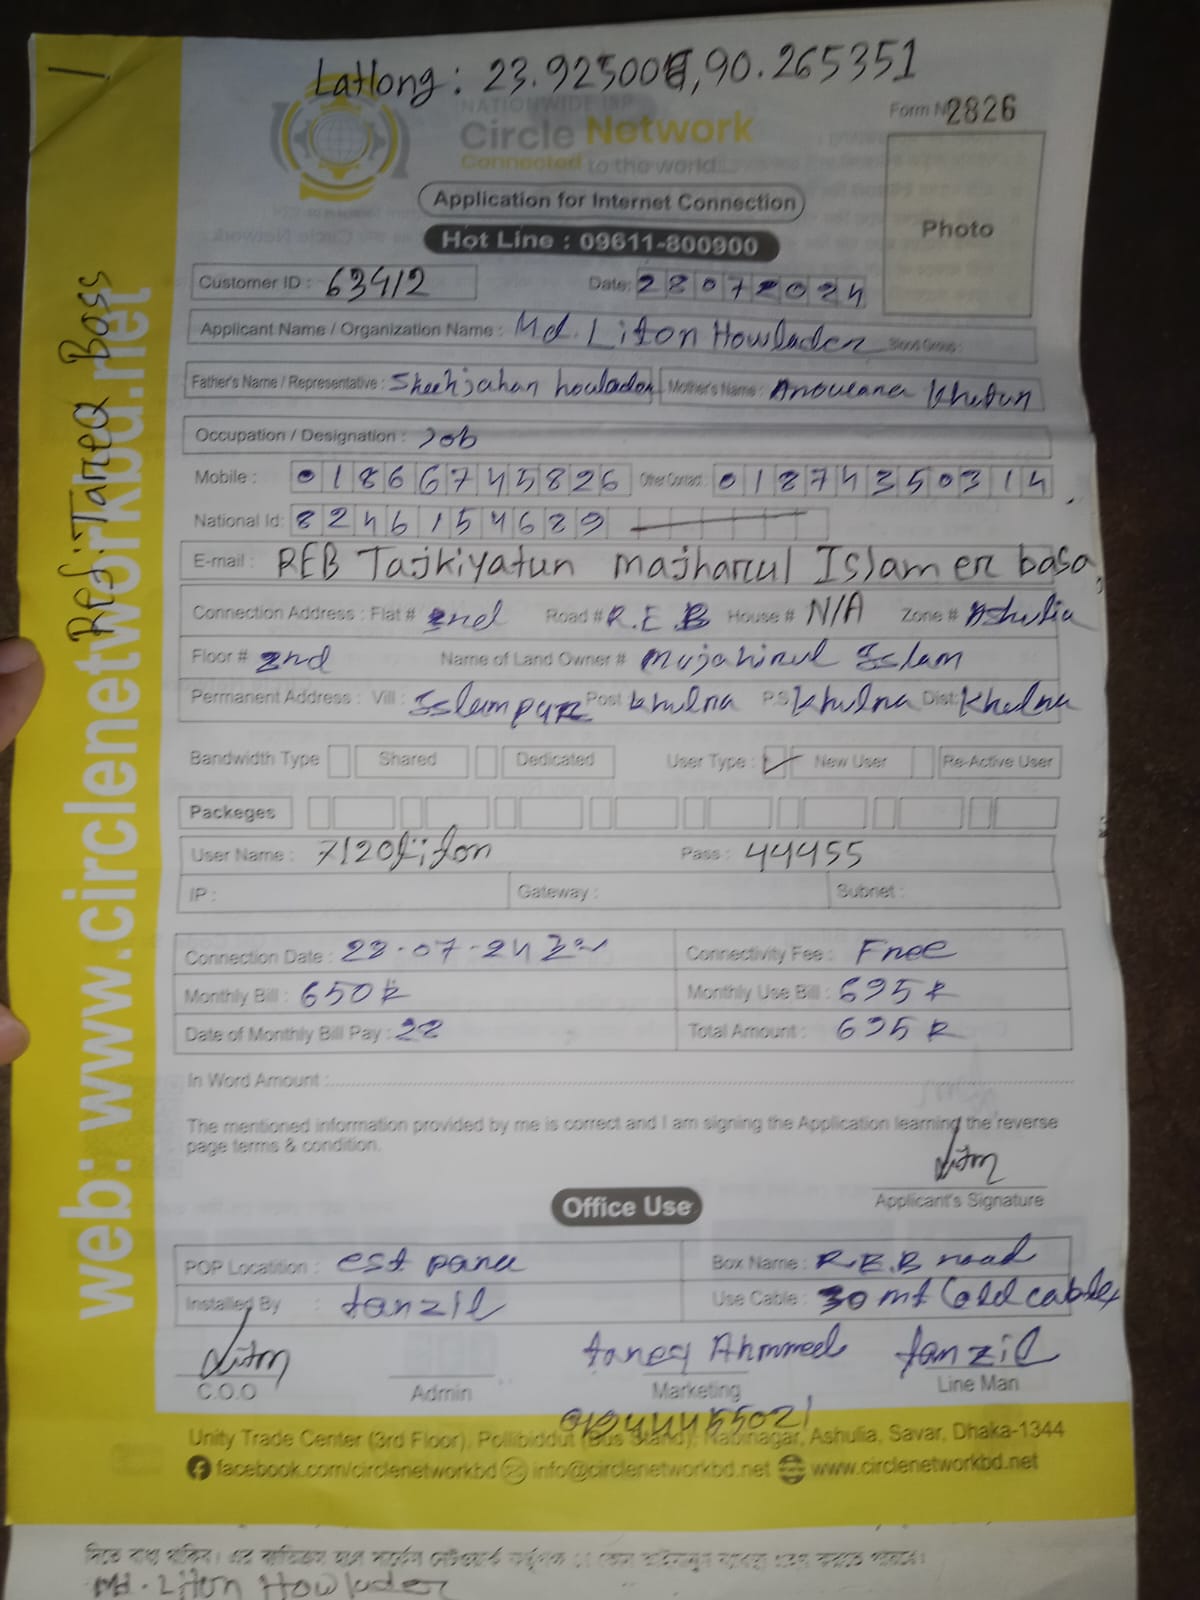 Latlong: 23.925008,90.265351
NATIONWIDE ISP
Circle Network
Connected to the world
Form N 2826
Photo
Application for Internet Connection
Hot Line : 09611-800900
Customer ID : 63412 Date: 28072024
Applicant Name / Organization Name : Md. Liton Howlader Blood Group :
Father's Name / Representative : Sheehjahan howlader Mother's Name : Khatun
Occupation / Designation : Job
Mobile : 01866745826 Other Contact : 01874350314
National Id: 8246154689
E-mail : REB Tajkiyatun majharul Islam er basa
Connection Address : Flat # 2nd Road # R.E.B House # N/A Zone # Ashulia
Floor # 2nd Name of Land Owner # Mujahirul Islam
Permanent Address : Vill : Islampur Post : khulna P.S Khulna Dist: Khulna
Bandwidth Type Shared Dedicated User Type : New User Re-Active User
Packeges
User Name : Pass : 44455
IP : Gateway : Subnet :
Connection Date : 28-07-24 Connectivity Fee : Free
Monthly Bill : 650 Monthly Use Bill : 635
Date of Monthly Bill Pay : 28 Total Amount : 635
In Word Amount :
The mentioned information provided by me is correct and I am signing the Application learning the reverse
page terms & condition.
Liton
Applicant's Signature
Office Use
POP Locatition : est para Box Name : R.E.B road
Installed By : tanzil Use Cable : 30 mt
Liton tareq Ahmmed tanzil
C.O.O Admin Marketing Line Man
Unity Trade Center (3rd Floor), Pollibiddut (Bus Stand), Nabinagar, Ashulia, Savar, Dhaka-1344
facebook.com/circlenetworkbd info@circlenetworkbd.net www.circlenetworkbd.net
web: www.circlenetworkbd.net
Ref: Tareq Boss
Md. Liton Howlader